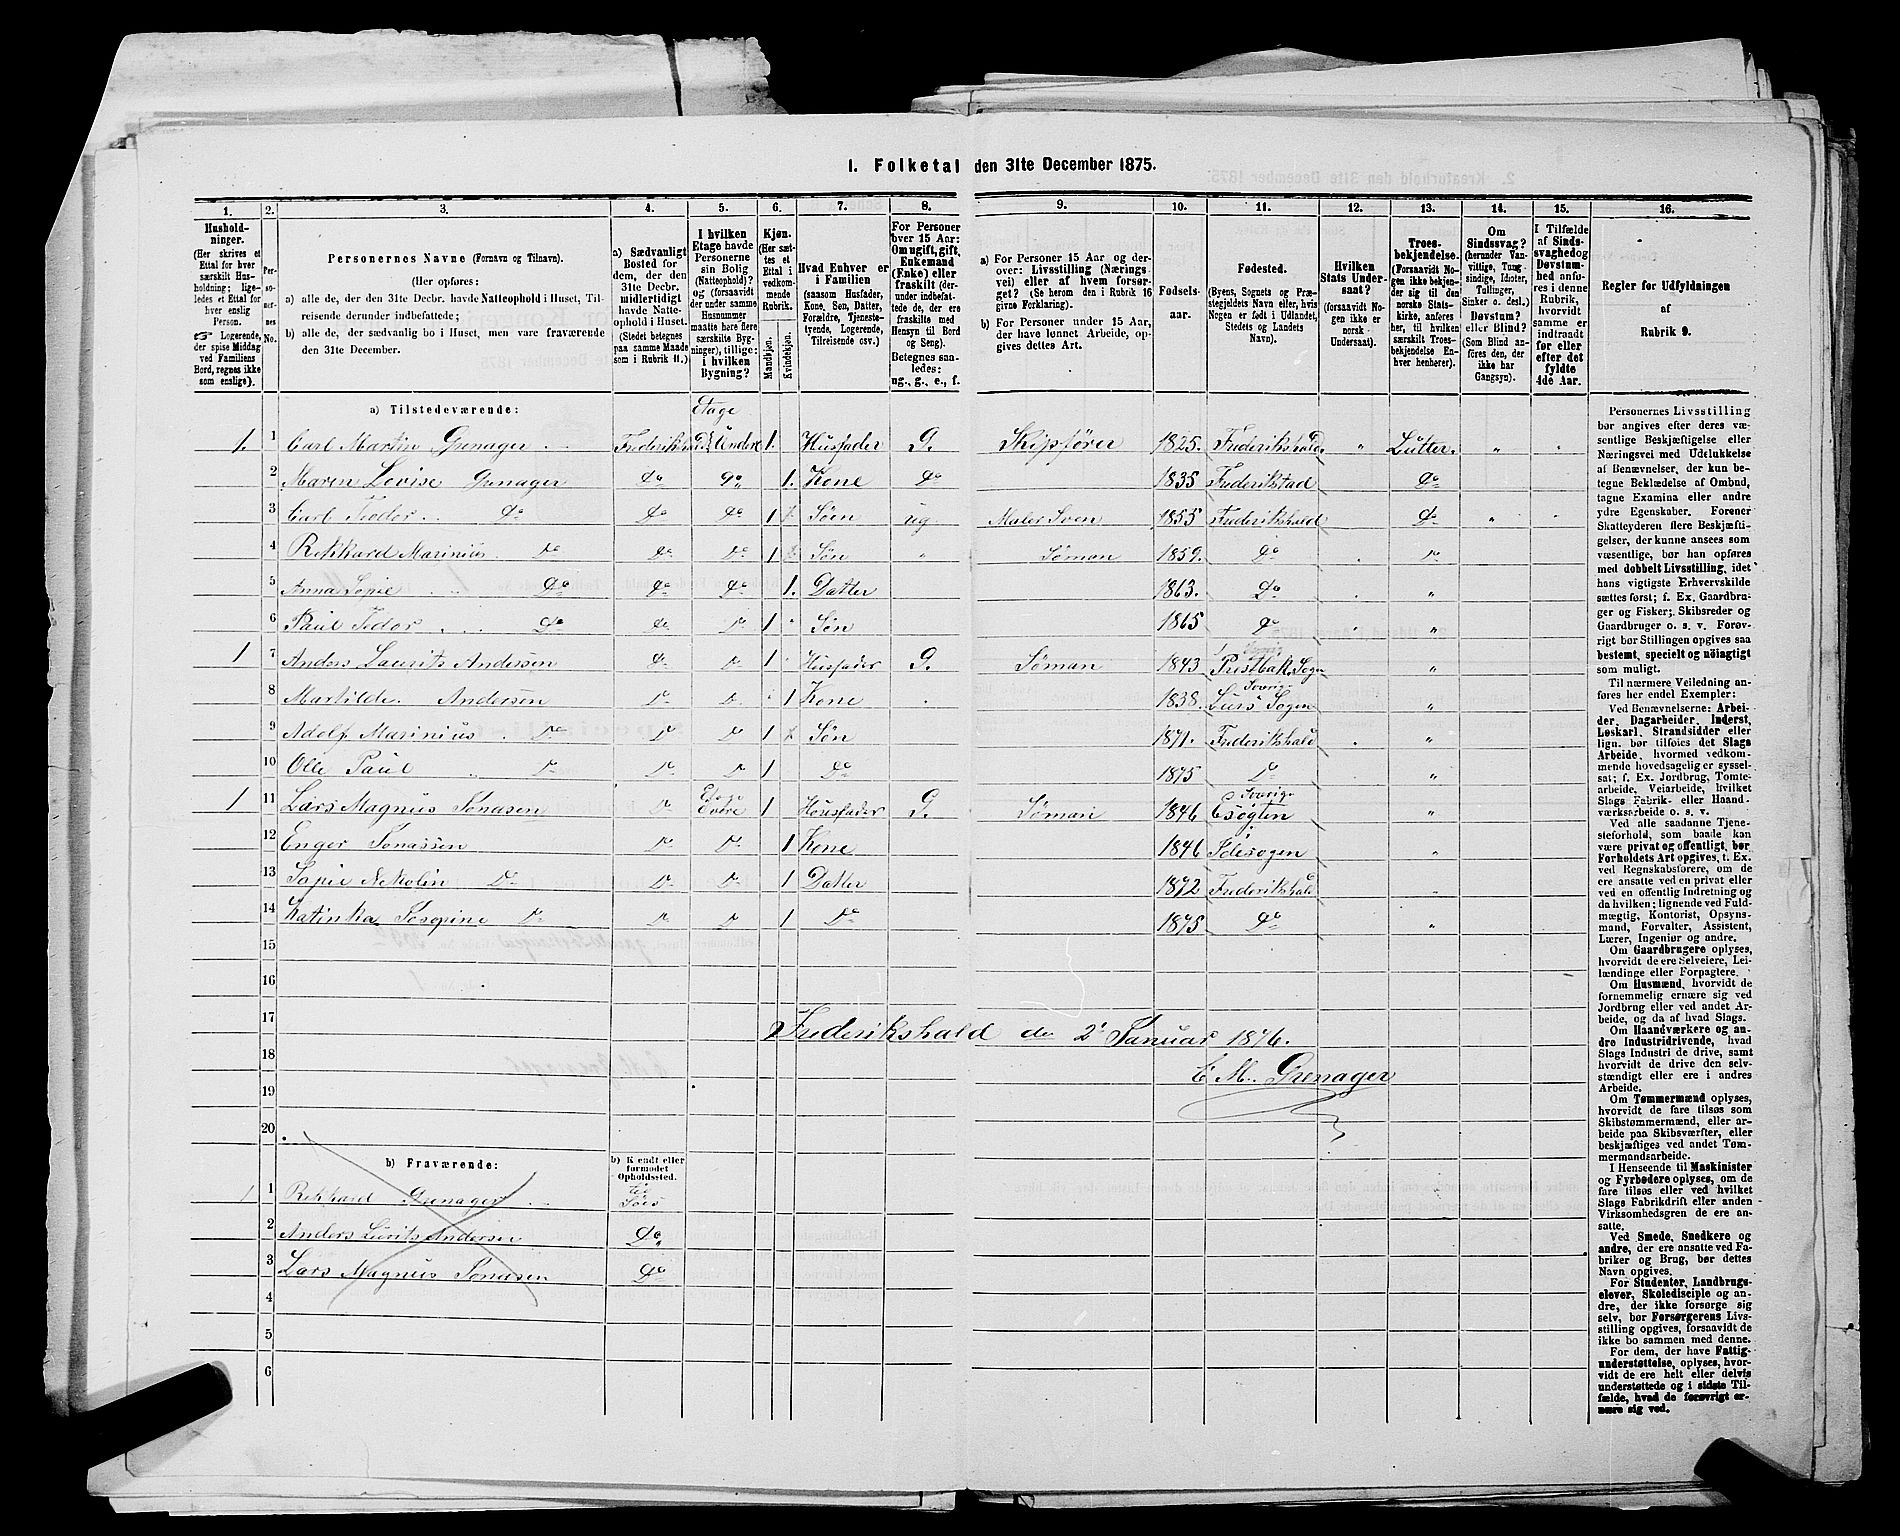 1. Folketal den 31te December 1875.
1. 2. 3. 4. 5. 6. 7. 8. 9. 10. 11. 12. 13. 14. 15. 16.
Husholdninger.
(Her skrives et
Ettal for hver
særskilt Husholdning; ligeledes
et Ettal for
hver enslig
Person.
Logerende,
der spise Middag
ved Familiens
Bord, regnes ikke
som enslige).
Personernes No.
Personernes Navne (Fornavn og Tilnavn).
(Her opføres:
a) alle de, der den 31te Decbr. havde Natteophold i Huset, Tilreisende
derunder indbefattede;
b) alle de, der sædvanlig bo i Huset, men vare fraværende
den 31te December.
a) Sædvanligt
Bosted for
dem, der den
31te Decbr.
midlertidigt
havde Natteophold
i Huset.
(Stedet betegnes
paa samme Maade
som i Rubrik 11.)
I hvilken
Etage havde
Personerne
sin Bolig
(Natteophold)?
og (forsaavidt
der under samme
Husnummer
maatte høre flere
særskilte Bygninger),
tillige:
i hvilken
Bygning?
Kjøn.
(Her sættes
et
Ettal i
vedkommende
Rubrik.
Mandkjøn.
Kvindekjøn.
Hvad Enhver er
i Familien
(saasom Husfader,
Kone, Søn, Datter,
Forældre, Tjenestetyende,
Logerende,
Tilreisende osv.)
For Personer
over 15 Aar:
Om ugift, gift,
Enkemand
(Enke) eller
fraskilt (derunder
indbefattede
de, der ere
fraskilte med
Hensyn til Bord
og Seng).
Betegnes saaledes:
ug., g., e., f.
a) For Personer 15 Aar og derover:
Livsstilling (Næringsvei)
eller af hvem forsørget?
(Se herom den i Rubrik 16
givne Forklaring).
b) For Personer under 15 Aar,
der have lønnet Arbeide, opgives
dettes Art.
Fødsels-
aar.
Fødested.
(Byens, Sognets og Præstegjeldets
Navn eller, hvis
Nogen er født i Udlandet,
Stedets og Landets
Navn).
Hvilken
Stats Undersaat?
(forsaavidt Nogen
ikke er
norsk
Undersaat).
Troesbekjendelse.
(Forsaavidt Nogen
ikke bekjender
sig til den
norske Statskirke,
anføres
her, til hvilken
særskilt Troesbekjendelse
Enhver
henhører).
Om
Sindssvag?
(herunder Vanvittige,
Tungsindige,
Idioter,
Tullinger,
Sinker o. desl.)
Døvstum?
eller Blind?
(Som Blind anføres
den, der
ikke har
Gangsyn).
I Tilfælde
af Sindssvaghed
og
Døvstumhed
anføres
i denne
Rubrik,
hvorvidt
samme er
indtraadt
før eller
efter det
fyldte
4de Aar.
Regler for Udfyldningen
af
Rubrik 9.
a) Tilstedeværende:
Etage
1. 1 Carl Martin Grenager Undere 1. Husfader G. Skipsfører 1825. Frederikshald. " Lutter. " "
2 Maren Lovise Grenager Do Do 1. Kone Do 1835 Frederikstad Do
3 Carl Tedor Do Do Do 1 Søen ug Maler Sven 1855 Frederikshald Do "
4 Rikkard Marinius Do Do Do 1 Søn " Søman 1859. Do Do
5 Anna Sopie Do Do Do 1. Datter 1863. Do "
6 Paul Tedor Do Do Do 1 Søn 1865 Do "
1 7 Anders Laurits Andersen Do Do 1 Husfader G. Søman 1843 Prestbak. Sogn "
8 Martilde Andersen Do Do 1 Kone 1838. Sverige Sogen "
9 Adolf Marinius Do Do Do 1 Søn 1871. Frederikshald "
10 Olle Paul Do Do Do 1 Do 1875 Do "
1 11 Lars Magnus Jonasen Do Etage Evere 1 Housfader G. Søman 1846 Sverige "
12 Enger Jonassen Do Do 1 Kone 1846 Idesogen "
13 Sopie Nekolin Do Do Do 1 Datter 1872 Frederikshald
14 Katinka Josopine Do Do Do 1 Do 1875 Do "
15
16
17 Frederikshald de 2 Januar 1876.
18 C M. Grenager
19
20
b) Fraværende:
b) Kjendt eller
formodet
Opholdssted.
1 1 Rikkard Grenager til Søes
2 Anders Andersen Do
3 Lars Magnus Jonasen Do
4
5
6
Personernes Livsstilling
bør angives efter deres væsentlige
Beskjæftigelse eller
Næringsvei med Udelukkelse
af Benævnelser, der kun betegne
Beklædelse af Ombud,
tagne Examina eller andre
ydre Egenskaber. Forener
Skatteyderen flere Beskjæftigelser,
der kunne ansees som
væsentlige, bør han opføres
med dobbelt Livsstilling, idet
hans vigtigste Erhvervskilde
sættes først; f. Ex. Gaardbruger
og Fisker; Skibsreder og
Gaardbruger o. s. v. Forøvrigt
bør Stillingen opgives saa
bestemt, specielt og nøiagtigt
som muligt.
Til nærmere Veiledning anføres
her endel Exempler:
Ved Benævnelserne: Arbeider,
Dagarbeider, Inderst,
Løskarl, Strandsidder eller
lign. bør tilføies det Slags
Arbeide, hvormed vedkommende
hovedsagelig er sysselsat;
f. Ex. Jordbrug, Tomtearbeide,
Veiarbeide, hvilket
Slags Fabrik- eller Haandværksarbeide
o. s. v.
Ved alle saadanne Tjenesteforhold,
som baade kan
være privat og offentligt, bør
Forholdets Art opgives, t. Ex.
ved Regnskabsførere, om de
ere ansatte ved en privat eller
ved en offentlig Indretning og
da hvilken; lignende ved Fuldmægtig,
Kontorist, Opsynsmand,
Forvalter, Assistent,
Lærer, Ingeniør og andre.
Om Gaardbrugere oplyses,
hvorvidt de ere Selveiere, Leilændinge
eller Forpagtere.
Om Husmænd, hvorvidt de
fornemmelig ernære sig ved
Jordbrug eller ved andet Arbeide,
og da af hvad Slags.
Om Haandværkere og andre
Industridrivende, hvad
Slags Industri de drive, samt
hvorvidt de drive den selvstændigt
eller ere i andres
Arbeide.
Om Tømmermænd oplyses,
hvorvidt de fare tilsøs som
Skibstømmermænd, eller arbeide
paa Skibsværfter, eller
beskjæftiges ved andet Tømmermandsarbeide.
I Henseende til Maskinister
og Fyrbødere oplyses, om de
fare tilsøs eller ved hvilket
Slags Fabrikdrift eller anden
Virksomhedsgren de ere ansatte.
Ved Smede, Snedkere og
andre, der ere ansatte ved Fabriker
og Brug, bør dettes
Navn opgives.
For Studenter, Landbrugselever,
Skoledisciple og andre,
der ikke forsørge sig
selv, bør Forsørgerens Livsstilling
opgives, forsaavidt de
ikke bo sammen med denne.
For dem, der have Fattigunderstøttelse,
oplyses, hvorvidt
de ere helt eller delvis
understøttede og i sidste Tilfælde,
hvad de forøvrigt ernære
sig ved.